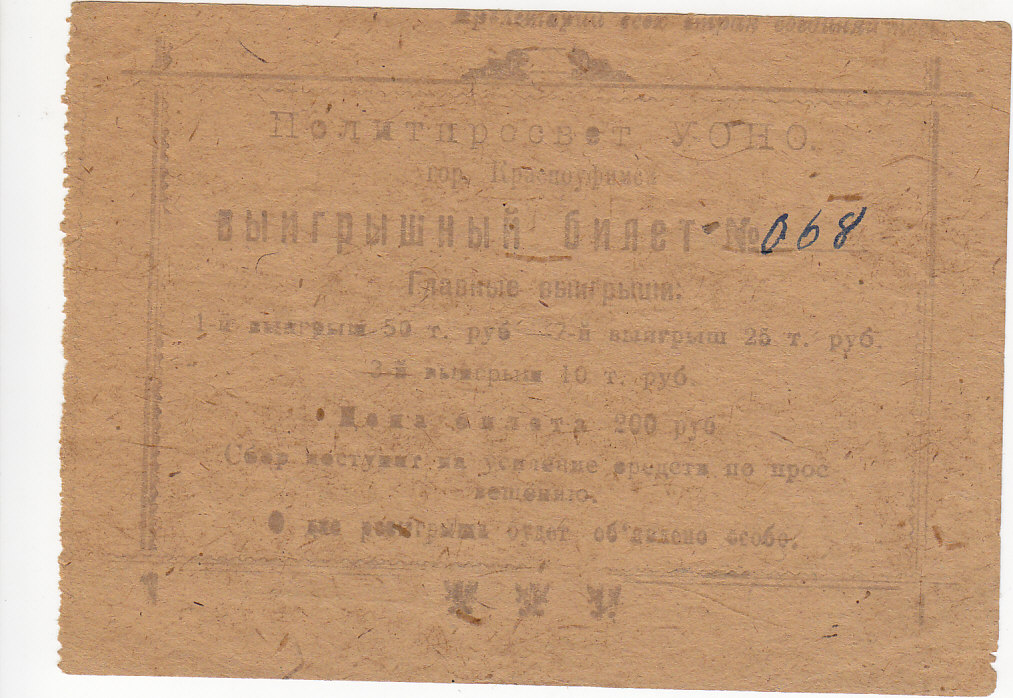 Пролетарии всех стран соединяйтесь
Политпросвет УОНО.
гор. Красноуфимск
Выигрышный билет № 068
Главные выигрыши:
1-й выигрыш 50 т. руб — 2-й выигрыш 25 т. руб.
3-й выигрыш 10 т. руб.
Цена билета 200 руб
Сбор поступит на усиление средств по прос
вещению.
О дне розыгрыша будет об'явлено особо.